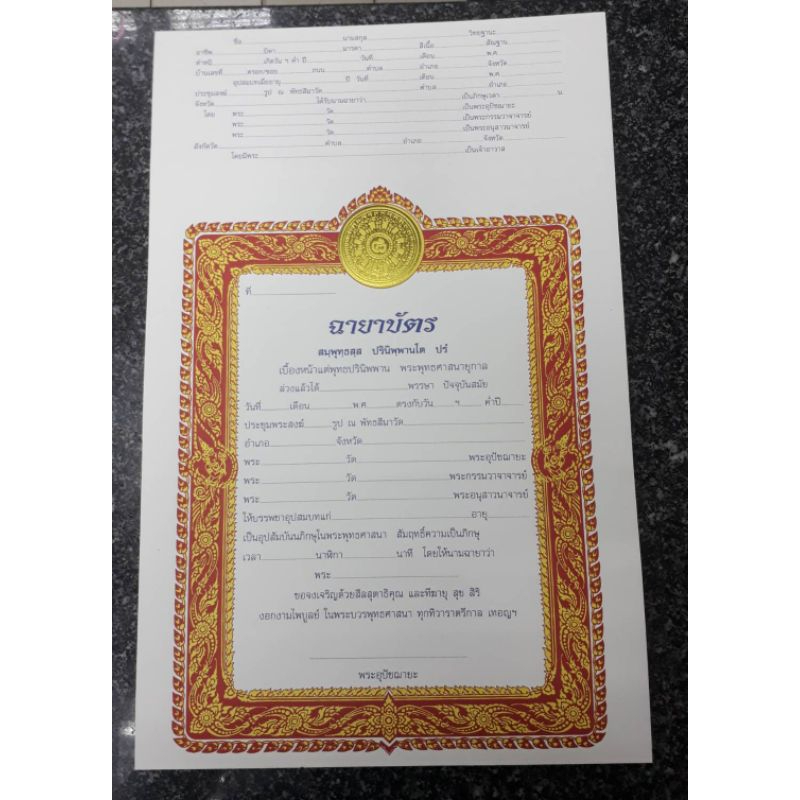 ชื่อ นามสกุล วิทยฐานะ
อาชีพ บิดา มารดา สีเนื้อ สัณฐาน
ตำหนิ เกิดวัน ฯ ค่ำ ปี วันที่ เดือน พ.ศ.
บ้านเลขที่ ตรอก/ซอย ถนน ตำบล อำเภอ จังหวัด
อุปสมบทเมื่ออายุ ปี วันที่ เดือน พ.ศ.
ประชุมสงฆ์ รูป ณ พัทธสีมาวัด ตำบล อำเภอ
จังหวัด ได้รับนามฉายาว่า เป็นภิกษุเวลา น.
โดย พระ วัด เป็นพระอุปัชฌายะ
พระ วัด เป็นพระกรรมวาจาจารย์
พระ วัด เป็นพระอนุสาวนาจารย์
สังกัดวัด ตำบล อำเภอ จังหวัด
โดยมีพระ เป็นเจ้าอาวาส
ที่
ฉายาบัตร
สมฺพุทฺธสฺส ปรินิพฺพานโต ปรํ
เบื้องหน้าแต่พุทธปรินิพพาน พระพุทธศาสนายุกาล
ล่วงแล้วได้ พรรษา ปัจจุบันสมัย
วันที่ เดือน พ.ศ. ตรงกับวัน ฯ ค่ำปี
ประชุมพระสงฆ์ รูป ณ พัทธสีมาวัด
อำเภอ จังหวัด
พระ วัด พระอุปัชฌายะ
พระ วัด พระกรรมวาจาจารย์
พระ วัด พระอนุสาวนาจารย์
ให้บรรพชาอุปสมบทแก่ อายุ
เป็นอุปสัมบันนภิกษุในพระพุทธศาสนา สัมฤทธิ์ความเป็นภิกษุ
เวลา นาฬิกา นาที โดยให้นามฉายาว่า
พระ
ขอจงเจริญด้วยสีลสุตาธิคุณ และทีฆายุ สุข สิริ
งอกงามไพบูลย์ ในพระบวรพุทธศาสนา ทุกทิวาราตรีกาล เทอญฯ
พระอุปัชฌายะ